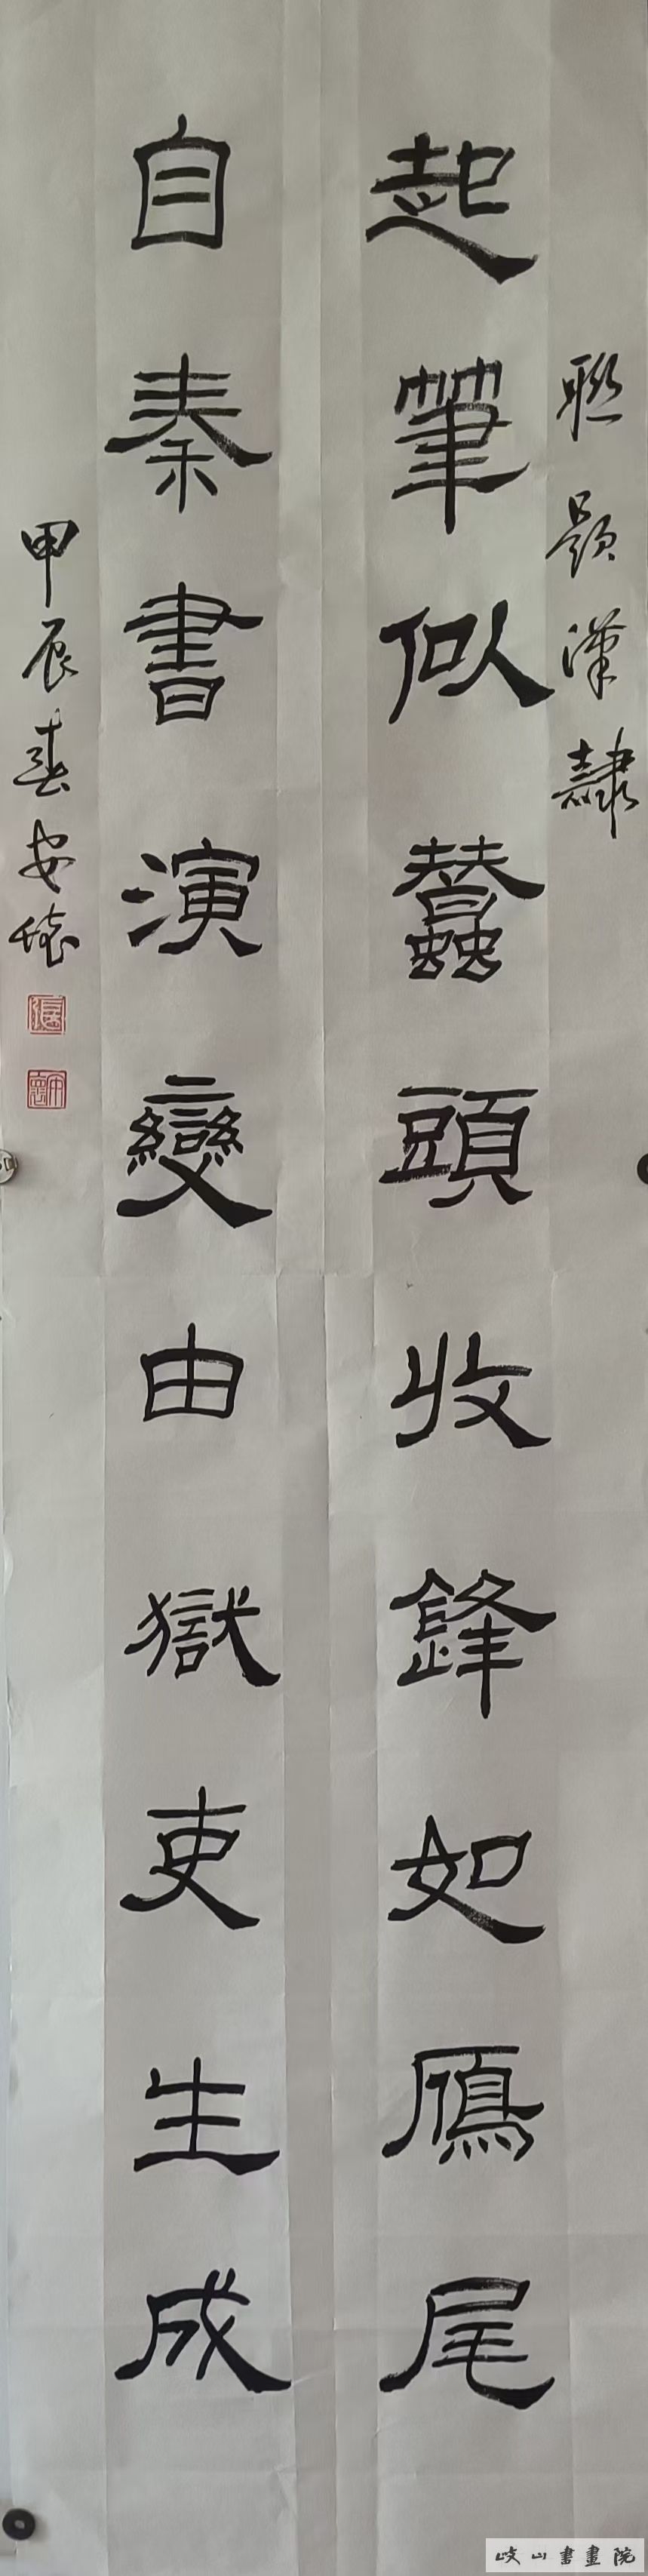 聯題漢隸
起筆似蠶頭收鋒如鴈尾
自秦書演變由獄吏生成
甲辰春安懷
岐山書畫院